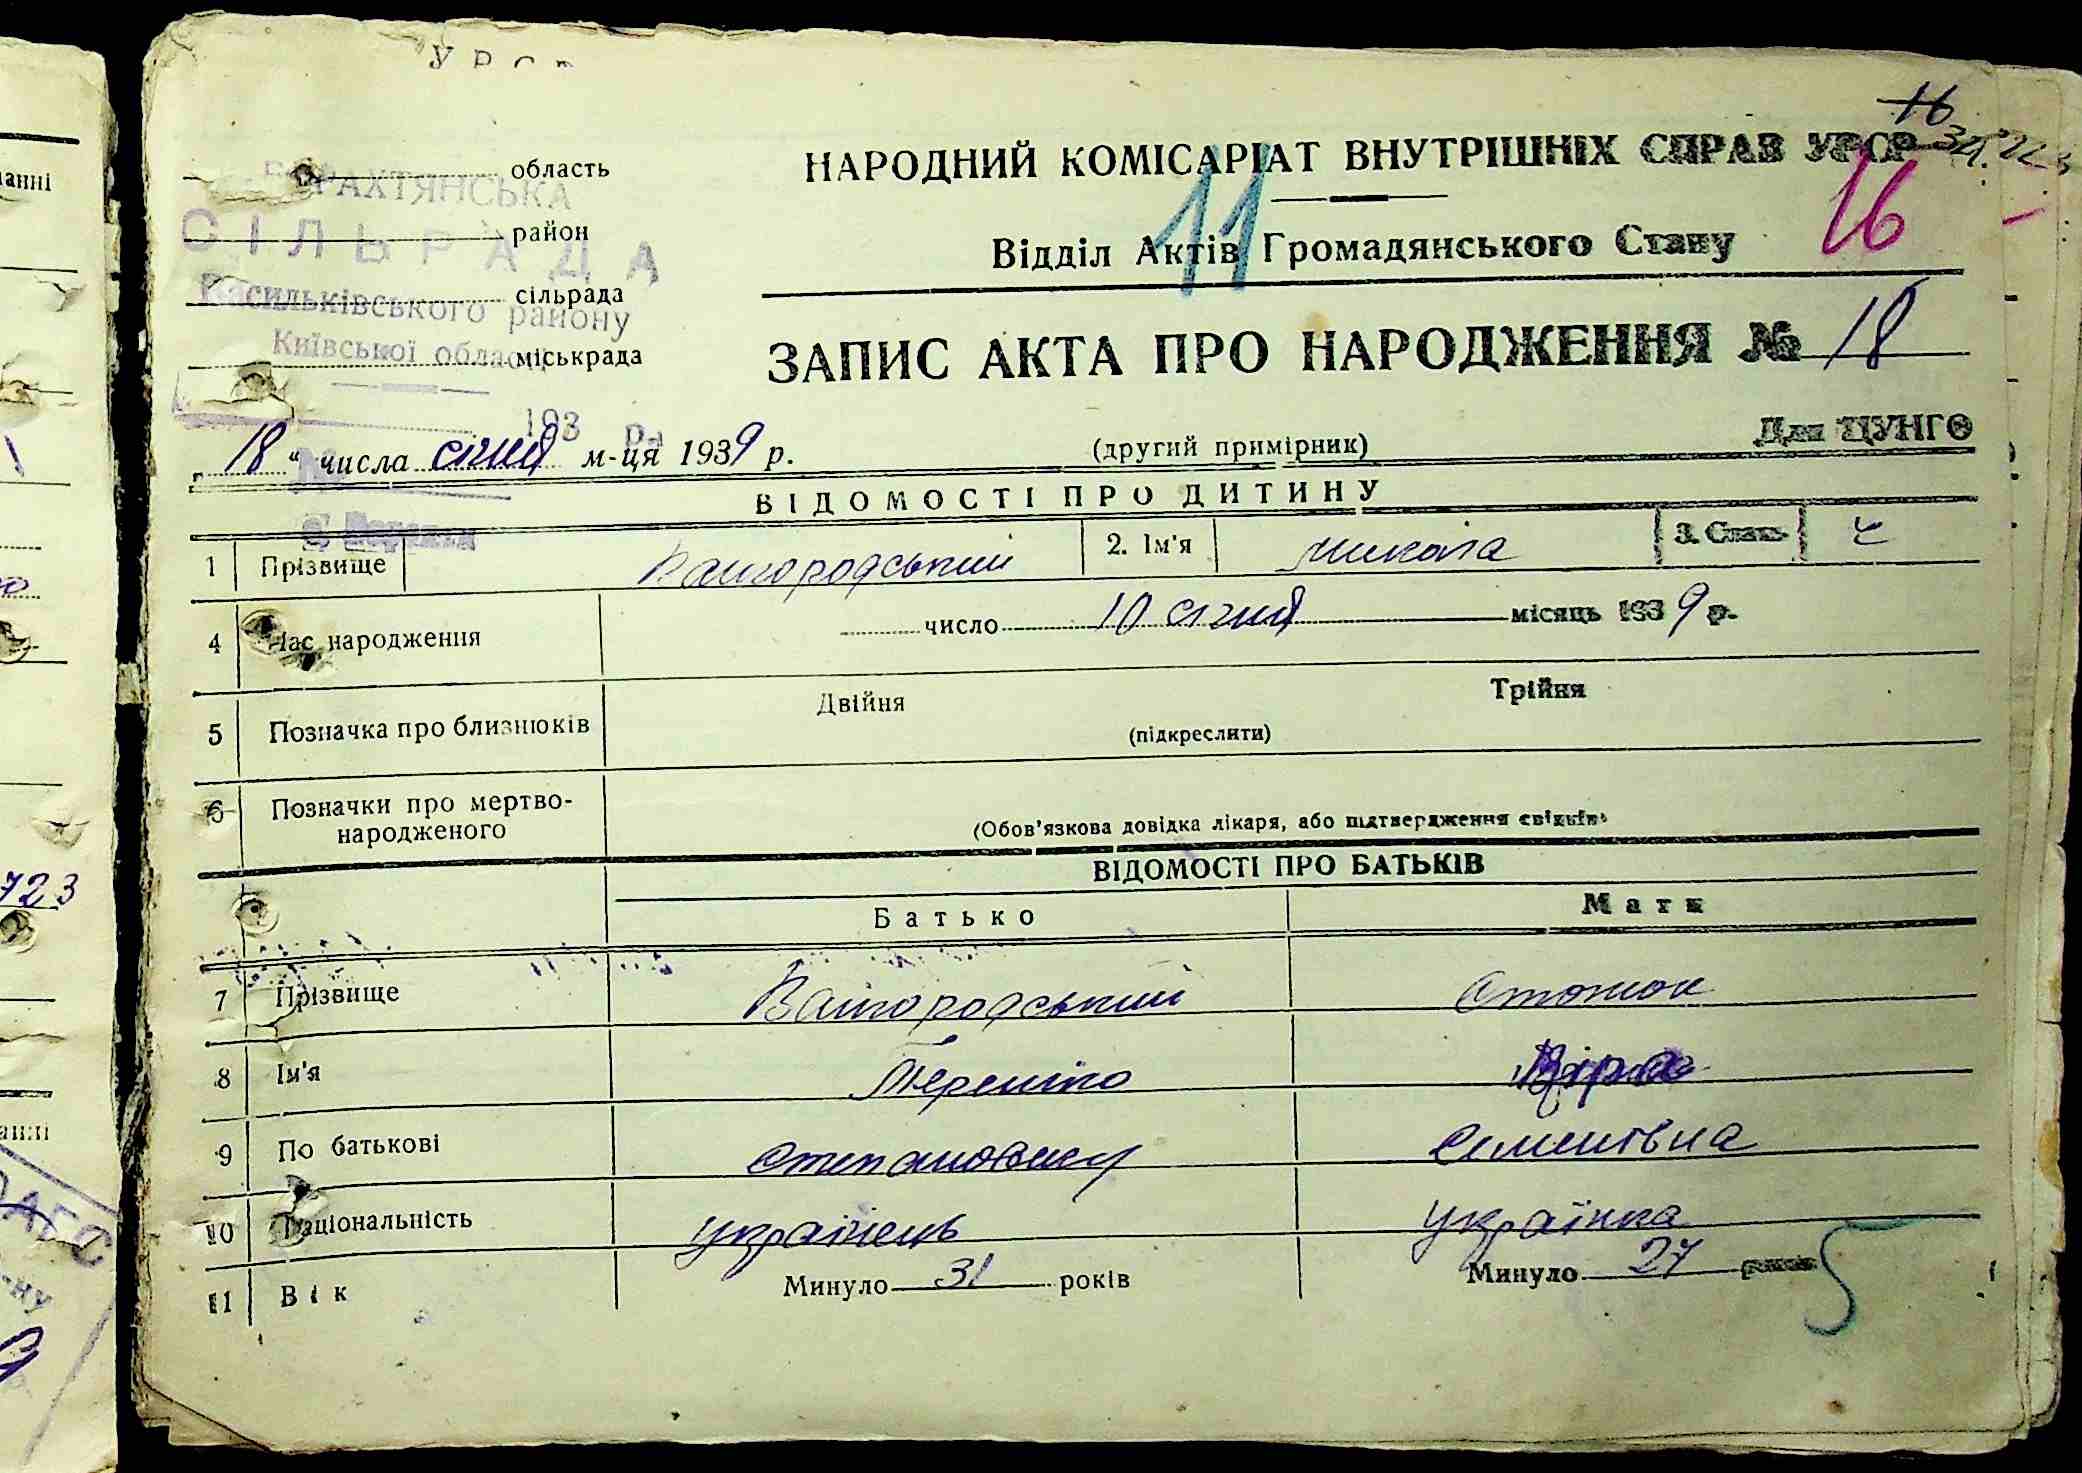 УРСР
БАРАХТЯНСЬКА
СІЛЬРАДА
Васильківського району
Київської області
193 р.
№
область
район
сільрада
міськрада
16
НАРОДНИЙ КОМІСАРІАТ ВНУТРІШНІХ СПРАВ УРСР
11
16
Відділ Актів Громадянського Стану
ЗАПИС АКТА ПРО НАРОДЖЕННЯ № 18
18 " числа січня м-ця 1939 р.
(другий примірник)
Для ЦУНГО
ВІДОМОСТІ ПРО ДИТИНУ
1 Прізвище Вашгородський 2. Ім'я Микола 3. Стать ч
4 Час народження число 10 січня місяць 1939 р.
5 Позначка про близнюків Двійня Трійня
(підкреслити)
6 Позначки про мертво-
народженого
(Обов'язкова довідка лікаря, або підтвердження свідків)
ВІДОМОСТІ ПРО БАТЬКІВ
Батько Мати
7 Прізвище Вашгородський
8 Ім'я Віра
9 По батькові Степанович Семенівна
10 Національність українець українка
11 Вік Минуло 31 років Минуло 27 років
5
анні
723
анні